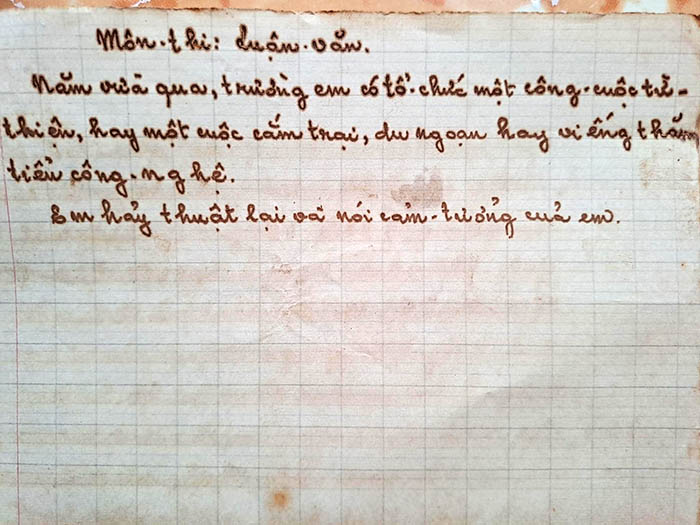 Môn-thi: Luận-văn.
Năm vừa qua, trường em có tổ-chức một công-cuộc từ-
thiện, hay một cuộc cắm trại, du ngoạn hay viếng thăm
tiểu công-nghệ.
Em hãy thuật lại và nói cảm-tưởng của em.